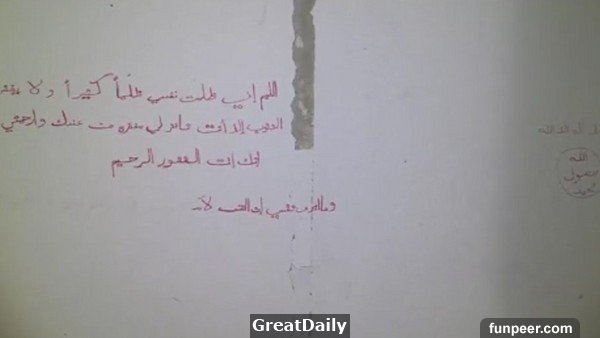 اللهم إني ظلمت نفسي ظلماً كثيراً ولا يغفر
الذنوب إلا أنت فاغفر لي مغفرة من عندك وارحمني
انك انت الغفور الرحيم
الله
رسول
محمد
GreatDaily
funpeer.com